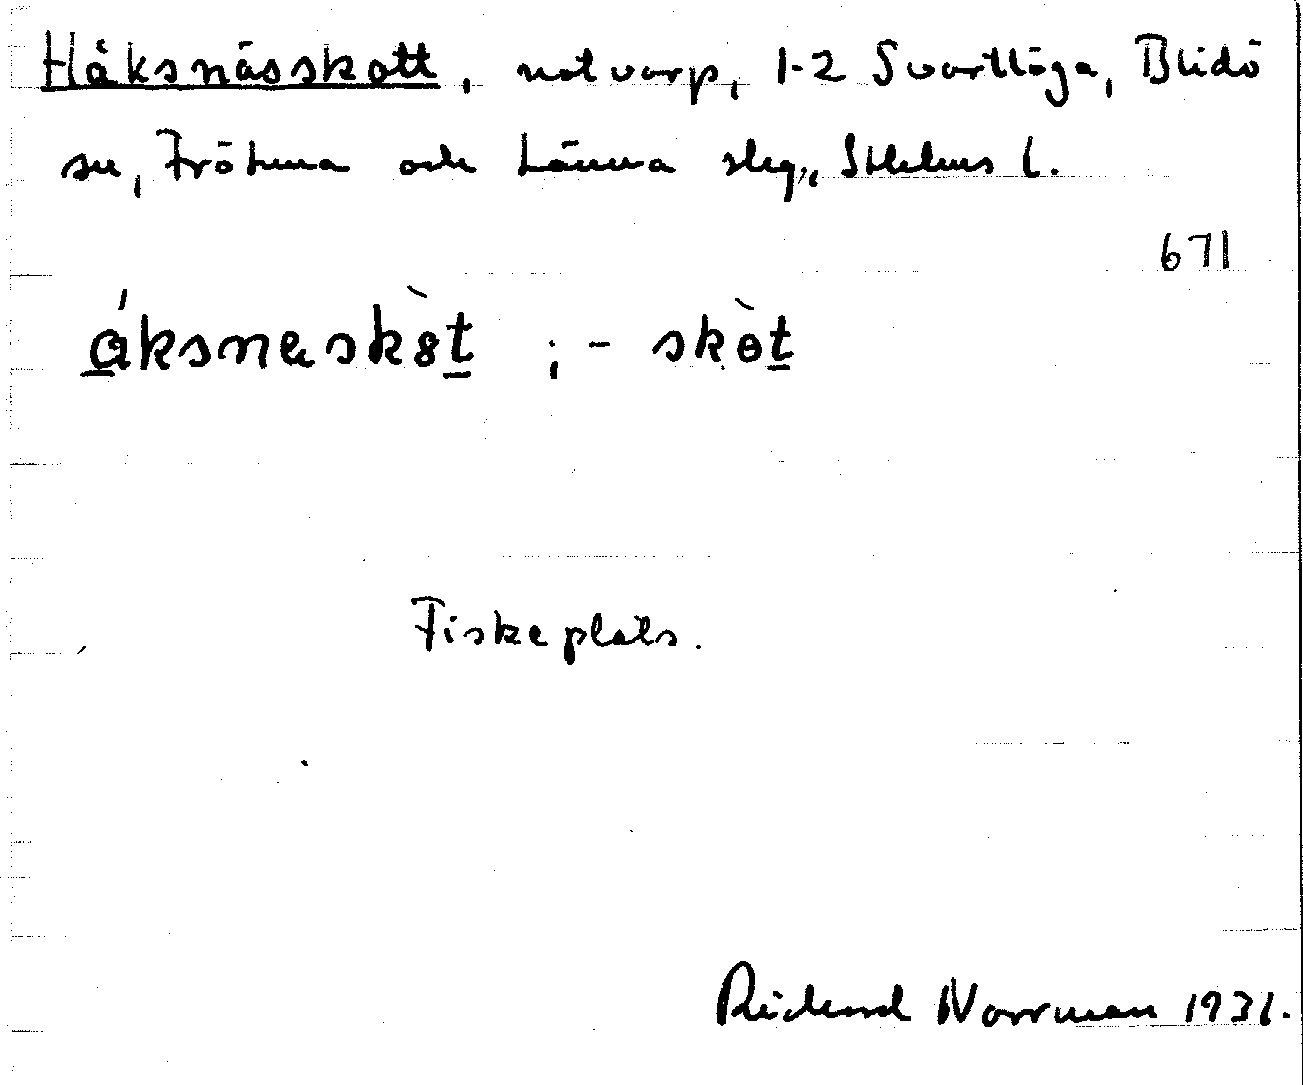 Håksnässkott, notvarp, 1-2 Svartlöga, Blidö
sn, Frötuna och Länna slg., Sthlms l.
671
áksnæskòt ; - skòt
Fiskeplats.
Rickard Norrman 1931.